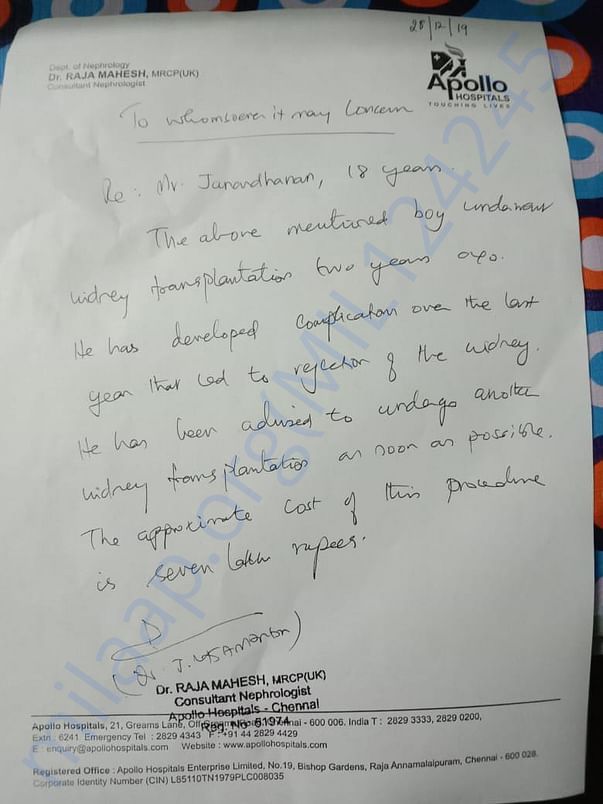 28/12/19
Dept. of Nephrology
Dr. RAJA MAHESH, MRCP(UK)
Consultant Nephrologist
Apollo
HOSPITALS
TOUCHING LIVES
To whomsoever it may Concern
Re: Mr. Janardhanan, 18 years.
The above mentioned boy underwent
kidney transplantation two years ago.
He has developed complication over the last
year that led to rejection of the kidney.
He has been advised to undergo another
kidney transplantation as soon as possible.
The approximate cost of this procedure
is seven lakh rupees.
(Dr. J.
Dr. RAJA MAHESH, MRCP(UK)
Consultant Nephrologist
Apollo Hospitals - Chennai
Reg. No: 51974
Apollo Hospitals, 21, Greams Lane, Off. Chennai - 600 006. India T : 2829 3333, 2829 0200,
Extn : 6241 Emergency Tel : 2829 4343 F : +91 44 2829 4429
E : enquiry@apollohospitals.com Website : www.apollohospitals.com
Registered Office : Apollo Hospitals Enterprise Limited, No.19, Bishop Gardens, Raja Annamalaipuram, Chennai - 600 028.
Corporate Identity Number (CIN) L85110TN1979PLC008035
milaap.org(MIL124245